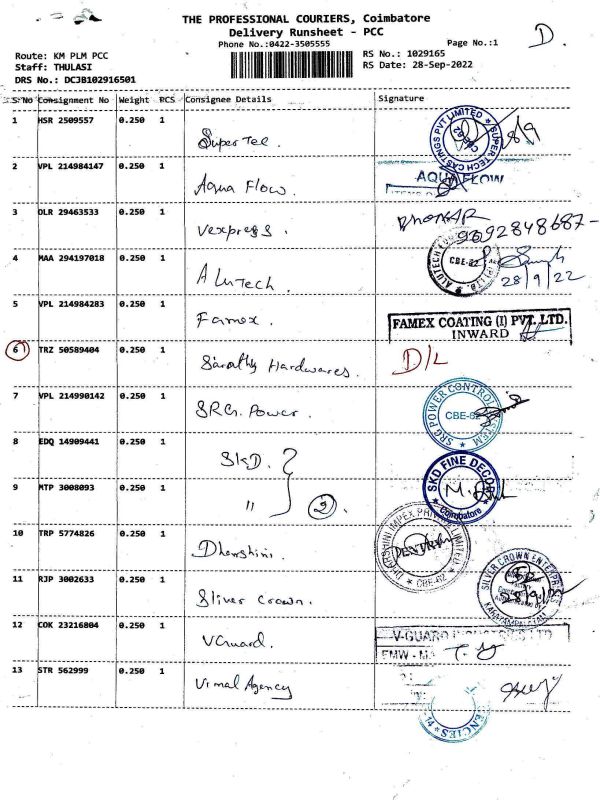 THE PROFESSIONAL COURIERS, Coimbatore
Delivery Runsheet - PCC
Phone No.:0422-3505555
Page No.:1
D.
Route: KM PLM PCC
RS No.: 1029165
Staff: THULASI
RS Date: 28-Sep-2022
DRS No.: DCJB102916501
S.No Consignment No Weight PCS Consignee Details Signature
1 HSR 2509557 0.250 1 SuperTec. SUPER TECH CASTINGS PVT LIMITED CBE-62
2 VPL 214984147 0.250 1 Aqua Flow. AQUA FLOW
3 OLR 29463533 0.250 1 Vexpress. 9692848687-
4 MAA 294197018 0.250 1 Alutech. ALUTECH CBE-62 (P) LTD. 28/9/22
5 VPL 214984283 0.250 1 Famex. FAMEX COATING (I) PVT. LTD.
INWARD
6 TRZ 50589404 0.250 1 Sarathy Hardwares. D/L
7 VPL 214990142 0.250 1 SRG. Power. SRG POWER CONTROL SYSTEM CBE-62
8 EDQ 14909441 0.250 1 SKD. SKD FINE DECOR Coimbatore
9 MTP 3008093 0.250 1 " 2.
10 TRP 5774826 0.250 1 Dharshini. DHARSHINI IMPEX PRIVATE LIMITED CBE-62
11 RJP 3002633 0.250 1 Sliver Crown. SILVER CROWN ENTERPRISES
12 COK 23216804 0.250 1 VGuard. V-GUARD INDUSTRIES LTD
EMW -
13 STR 562999 0.250 1 Vimal Agency 14 ENCIES